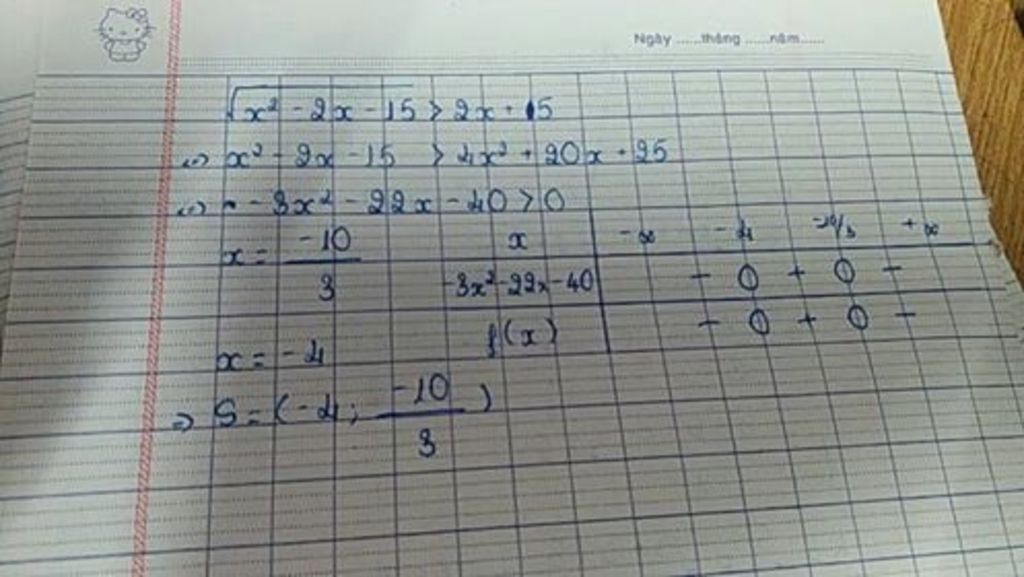 Ngày ......tháng ......năm......
√(x² - 2x - 15) > 2x + 5
<=> x² - 2x - 15 > 4x² + 20x + 25
<=> - 3x² - 22x - 40 > 0
x = -10/3
x = -4
x -∞ -4 -10/3 +∞
-3x²-22x-40 - 0 + 0 -
f(x) - 0 + 0 -
=> S = (-4; -10/3)